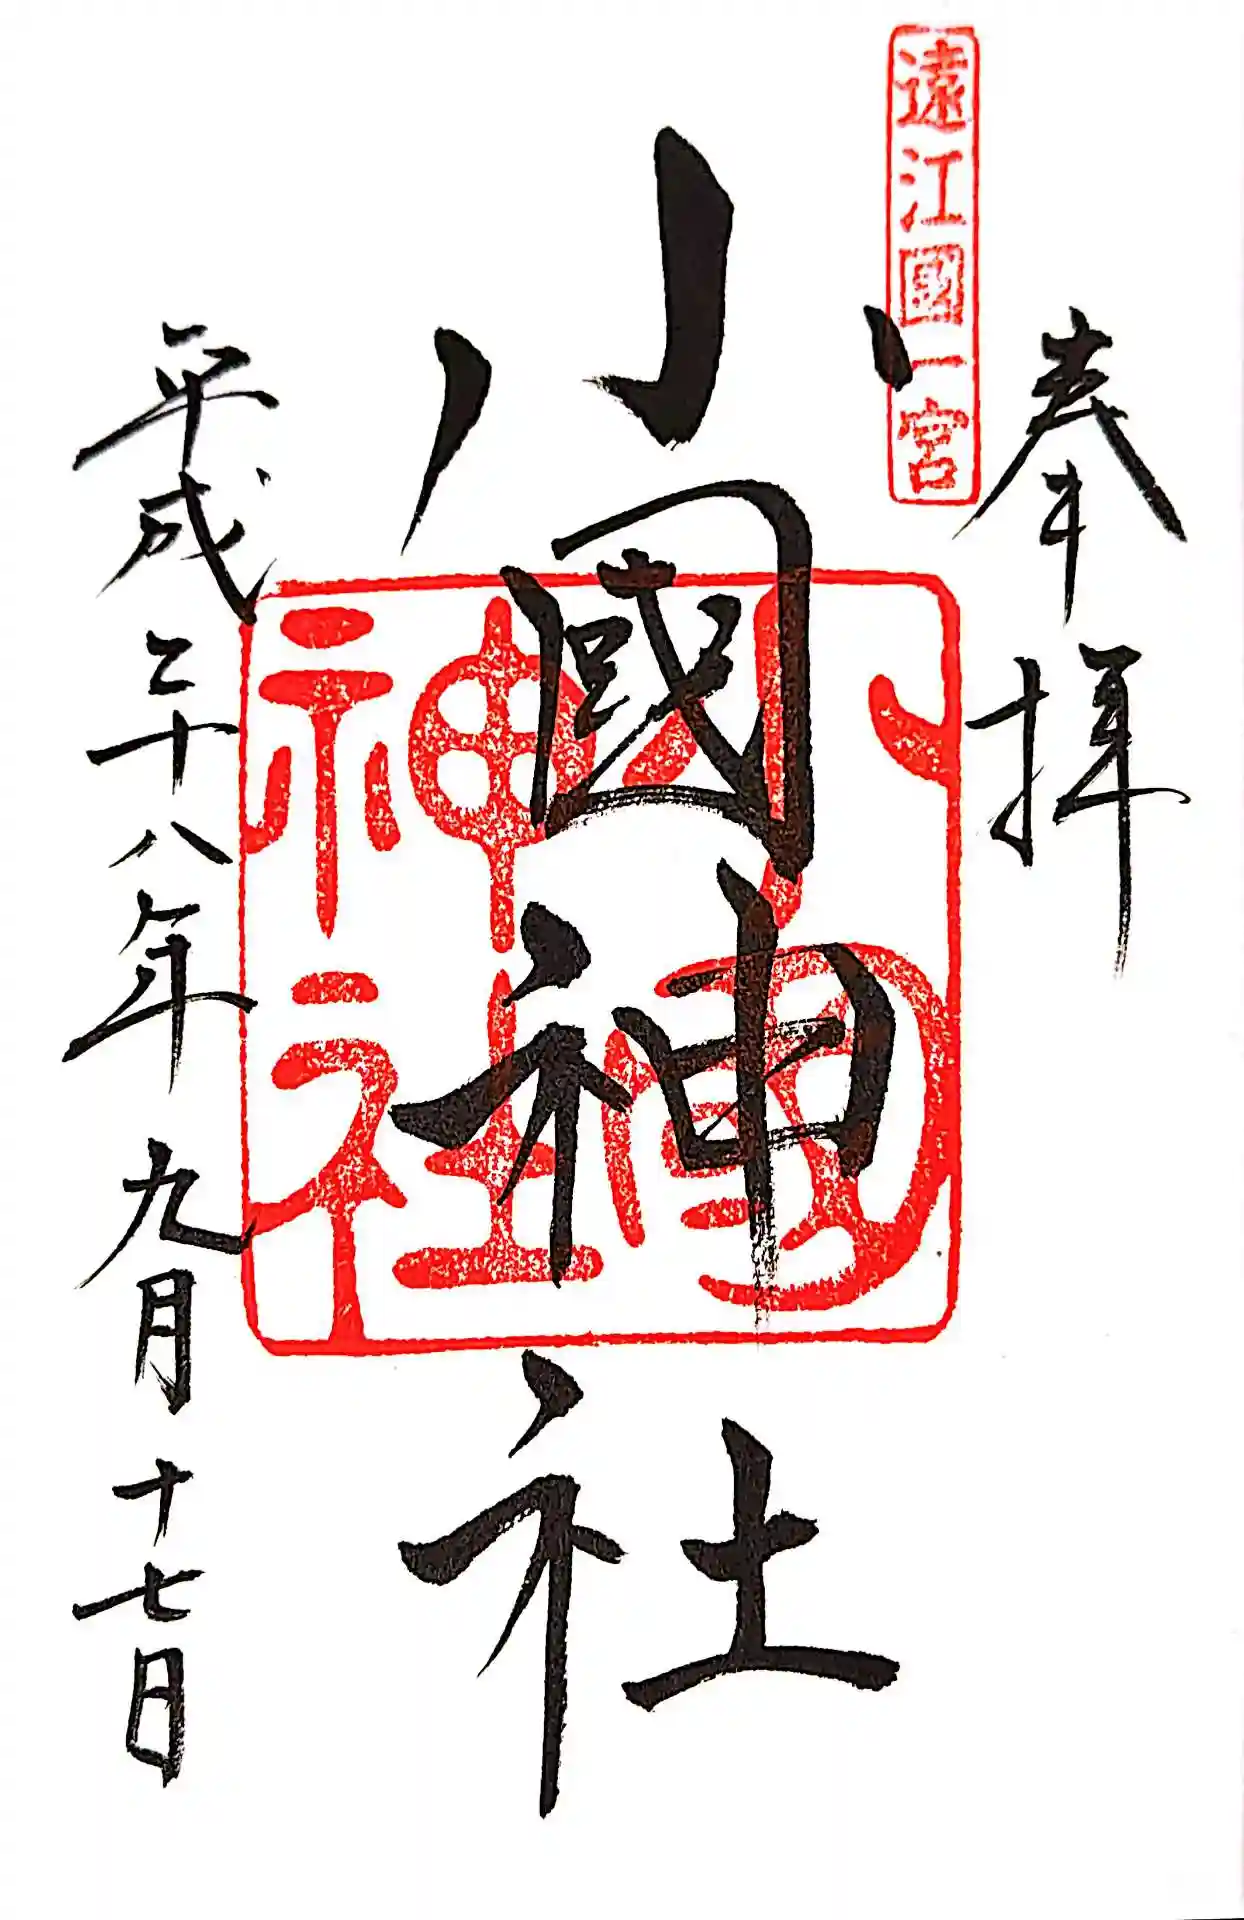 奉拝
遠江國一宮
小國神社
小國
神社
平成二十八年九月十七日